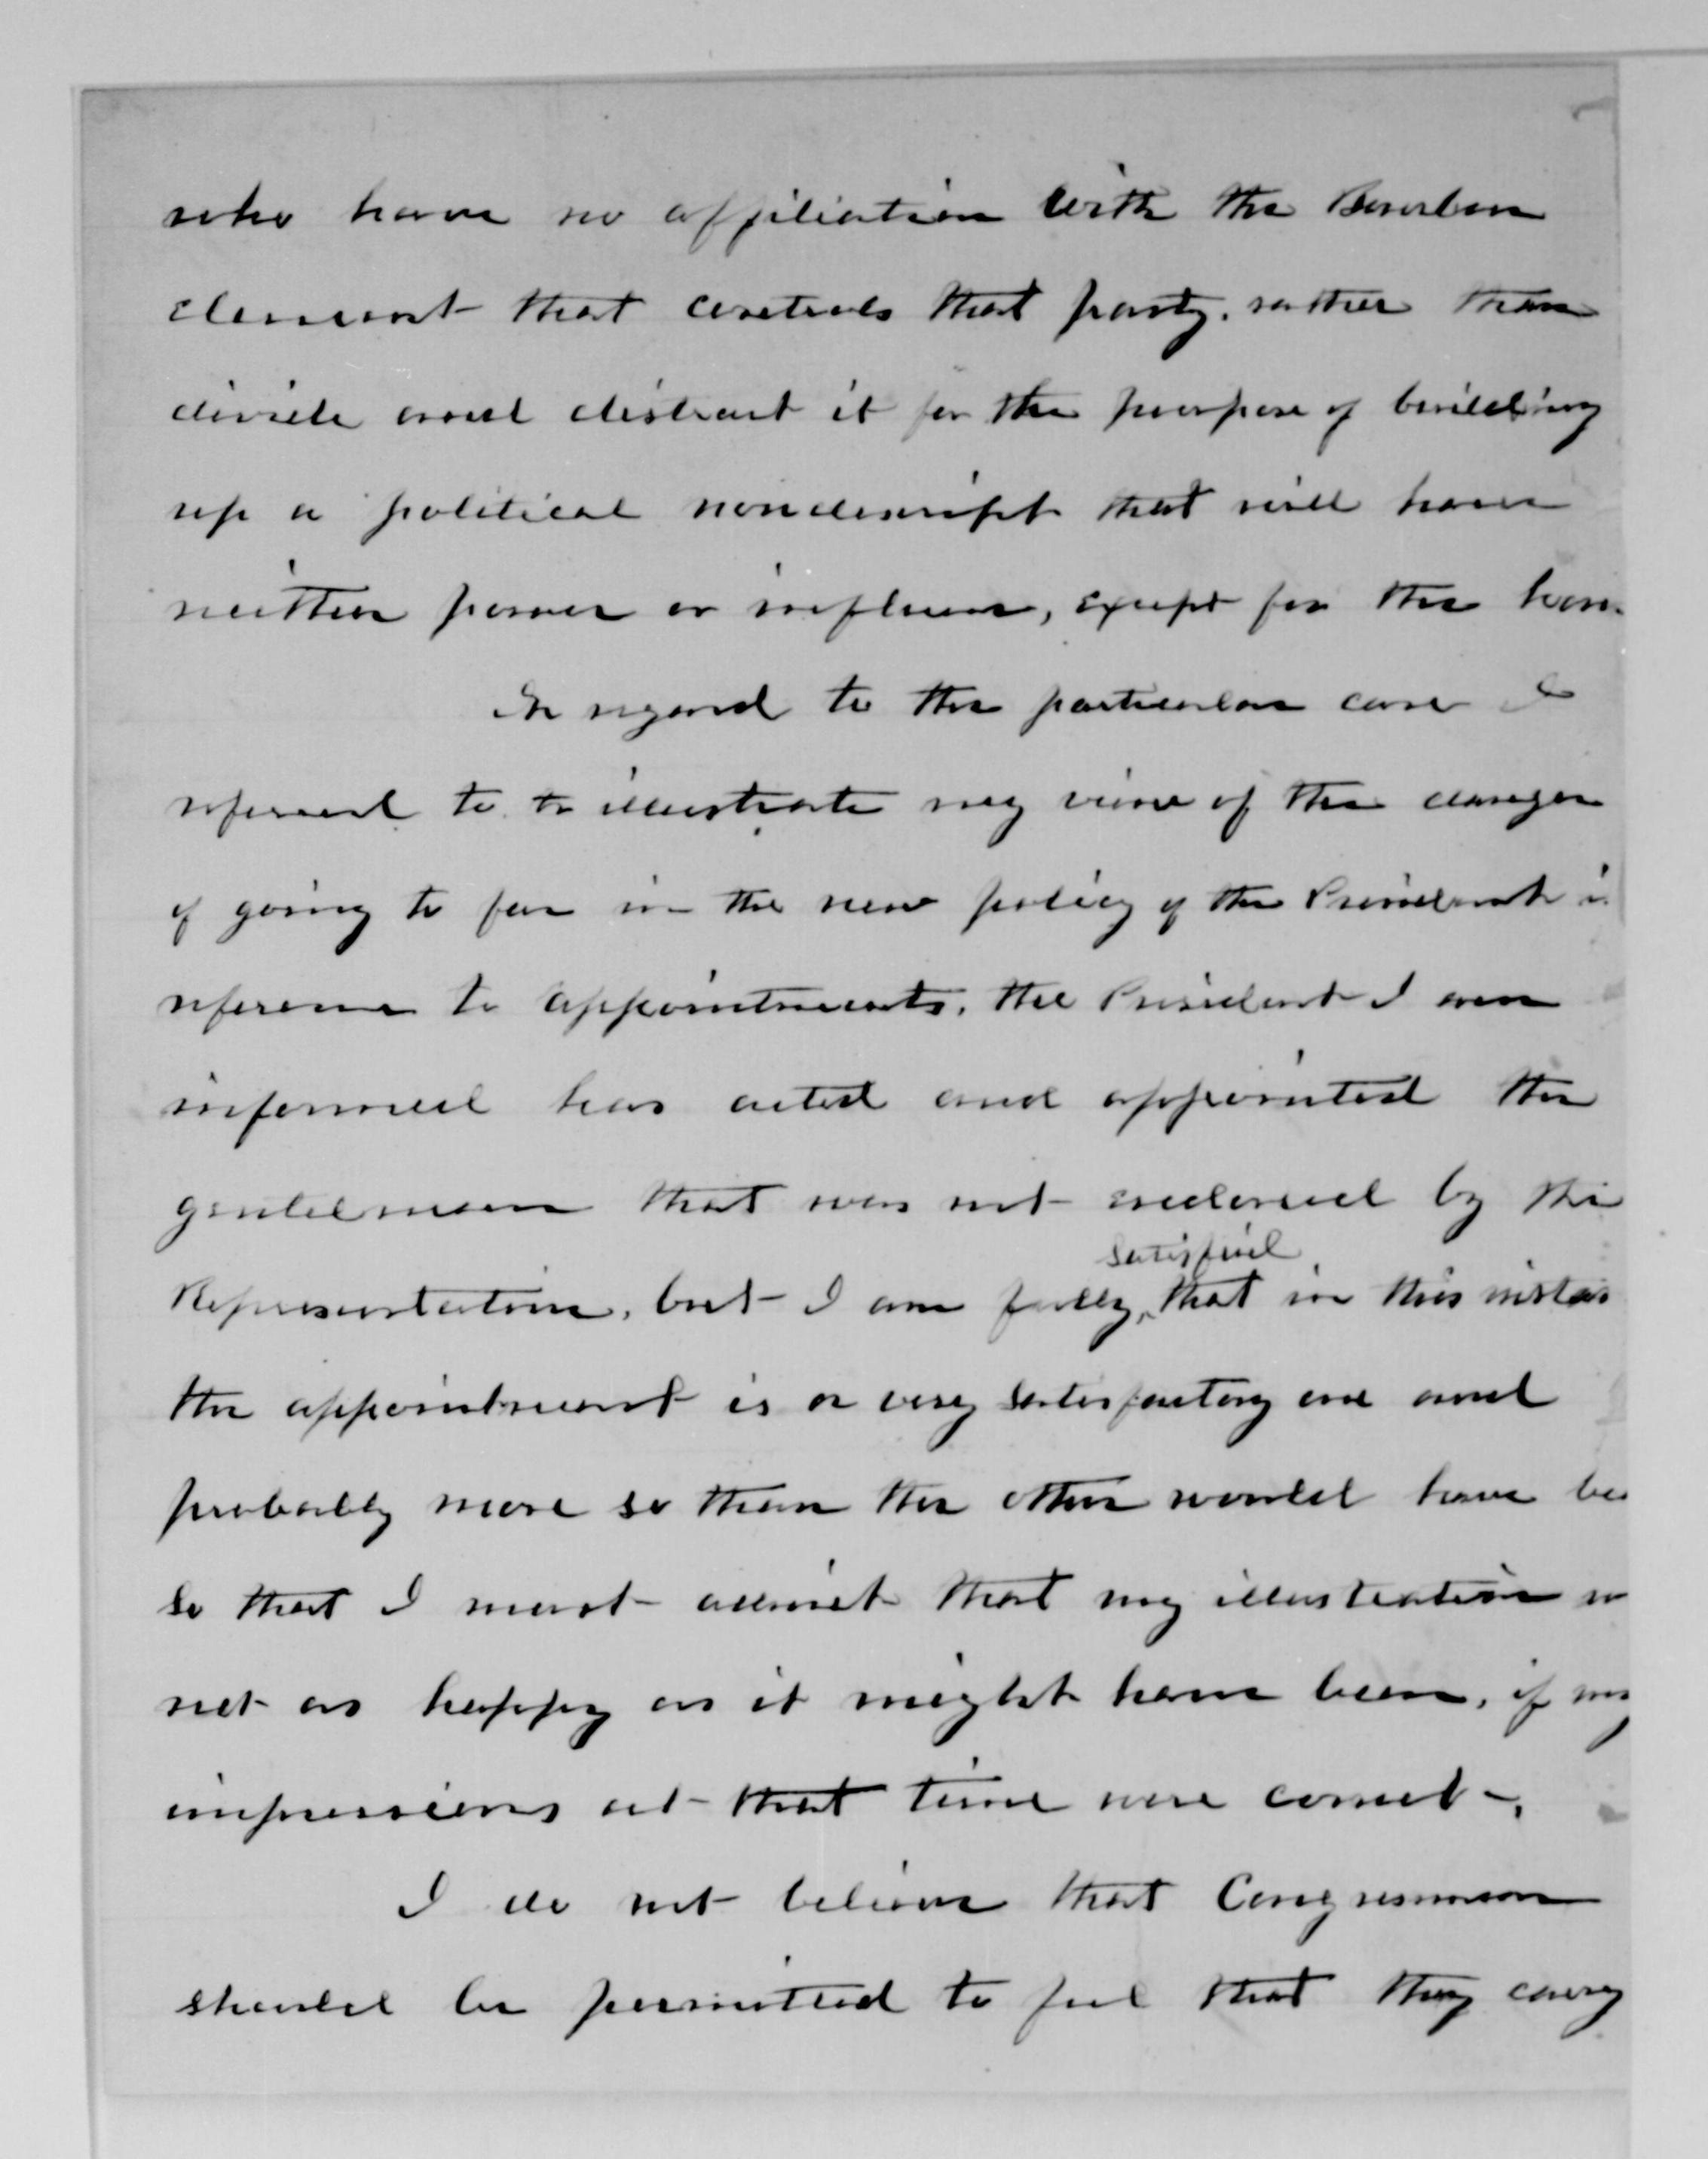 who have no affiliation with the Bourbon
element that controls that party. rather than
divide and distract it for the purpose of building
up a political nondescript that will have
neither power or influence, except for the
In regard to the particular case I
referred to to illustrate my view of the danger
of going to far in the new policy of the President in
reference to appointments. the President I am
informed has acted and appointed the
gentleman that was not endorsed by the
satisfied
Representative, but I am fully that in this instan
the appointment is a very satisfactory one and
probably more so than the other would have be
So that I must admit that my illustration
not as happy as it might have been, if my
impressions at that time were correct.
I do not believe that Congressmen
should be permitted to feel that they carry